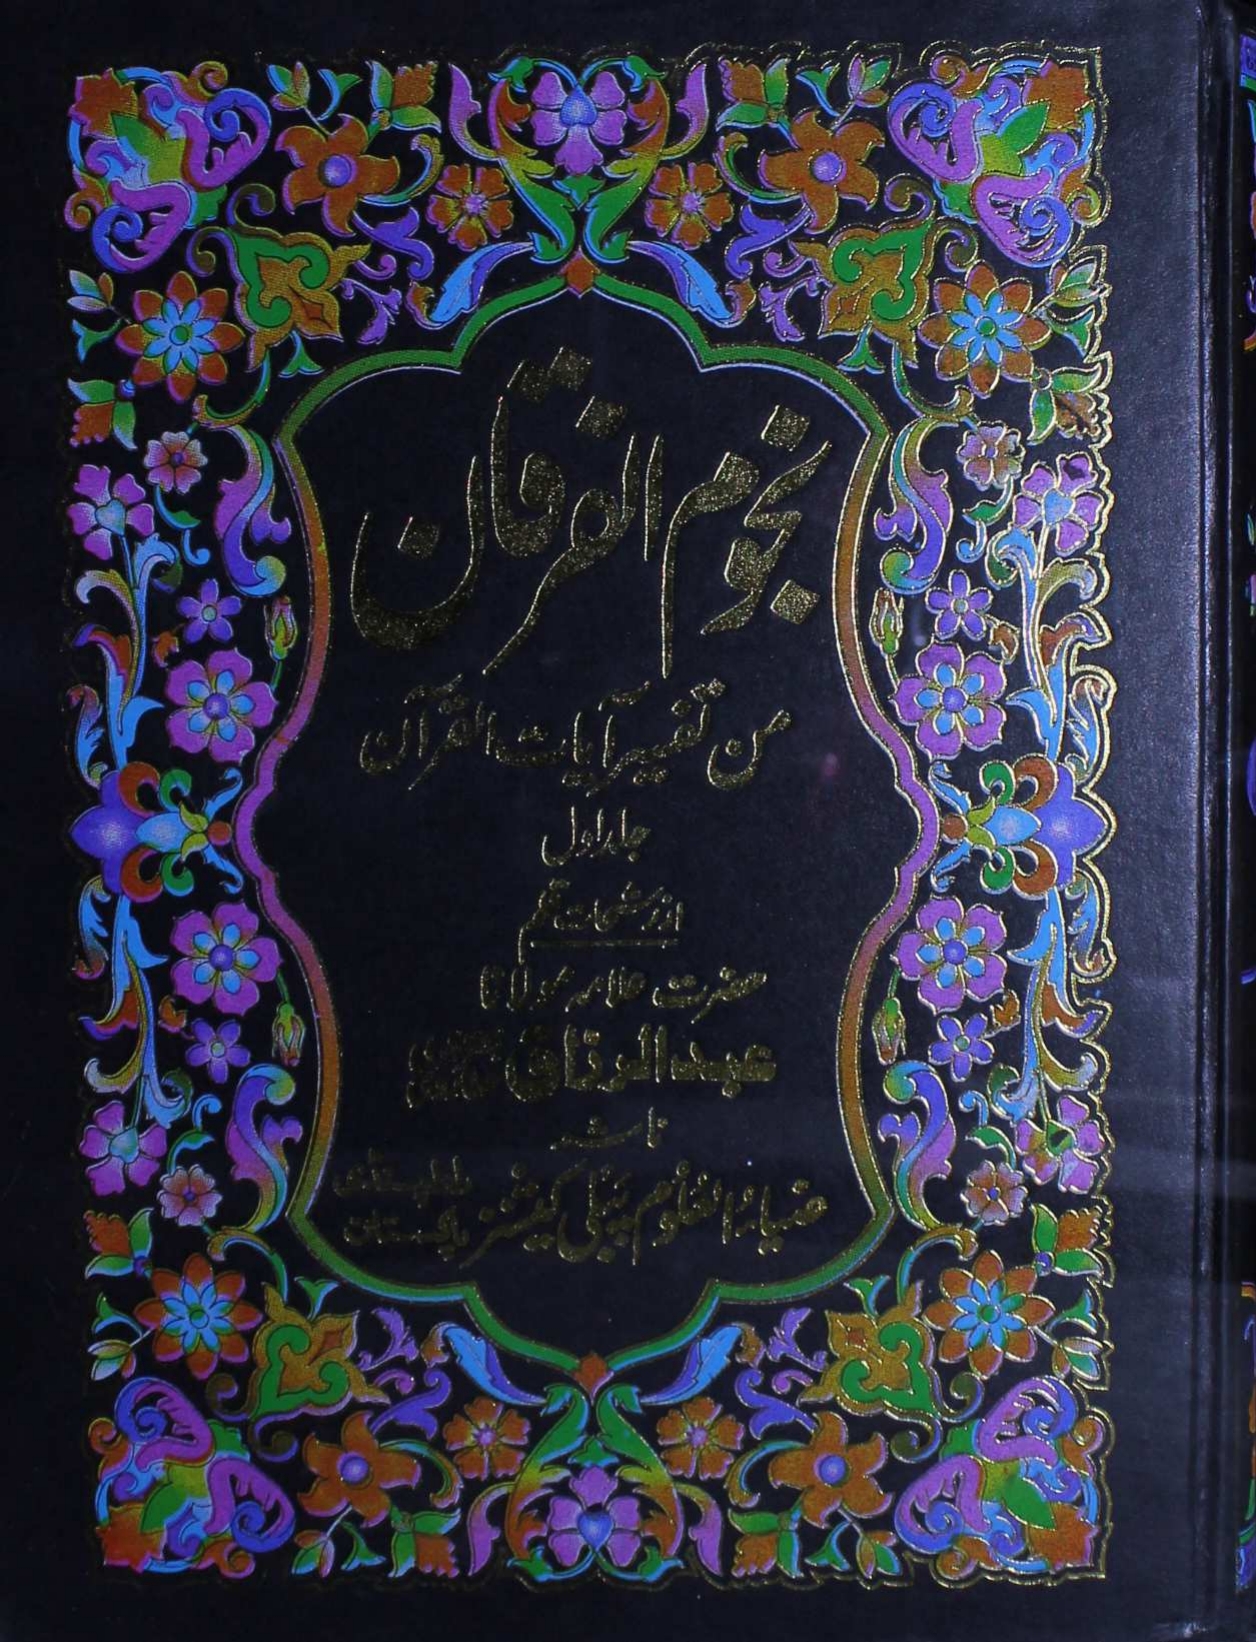 نجوم الفرقان
من تفسیر آیات القرآن
جلد اول
از رشحات قلم
حضرت علامہ مولانا
عبدالرزاق
ناشر
ضیاء العلوم پبلی کیشنز راولپنڈی پاکستان